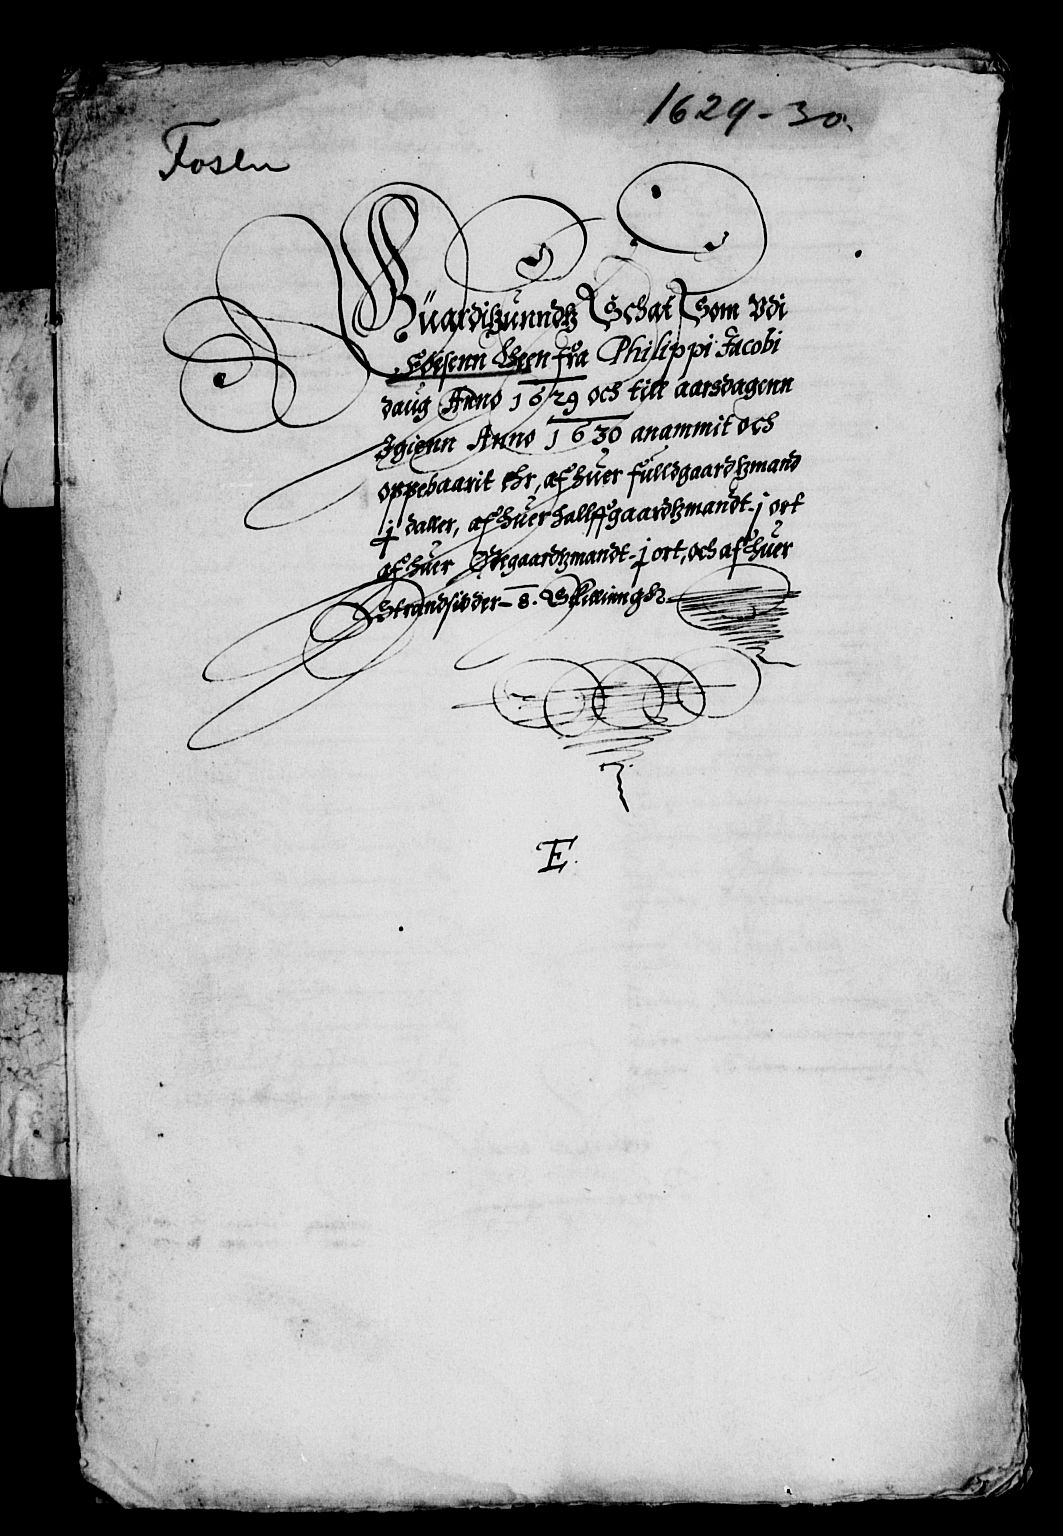 1629-30.
Fosen
Guardizunndtz Schat Som Vdi
Føesenn Leen fra Philippi Jacobi
daug Anno 1629 och till aarsdagenn
Igienn Anno 1630 anammit och
oppebaarit ehr, af huer fulldgaardtzmand
j daller, af huer hallffgaardtzmandt - j ort
af huer Ødegaardtzmandt - j ort, och af huer
Strandsidder - 8. Skillinngh
E.